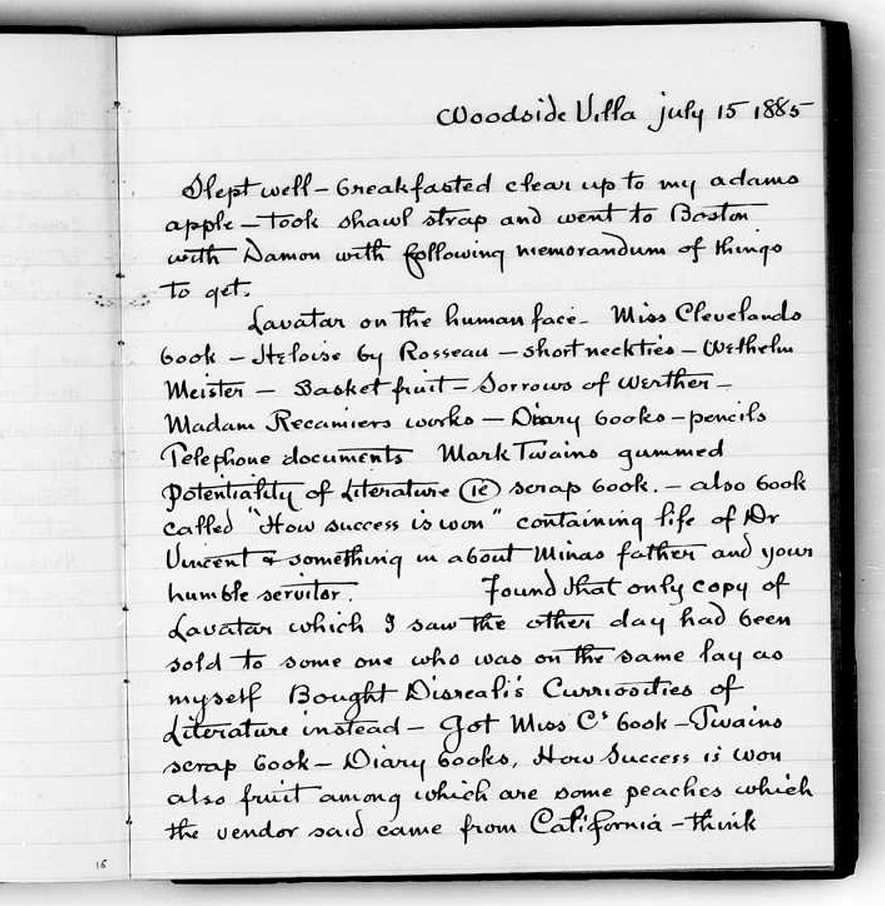 Woodside Villa july 15 1885
Slept well – Breakfasted clear up to my adams
apple – took shawl strap and went to Boston
with Damon with following memorandum of things
to get.
Lavatar on the human face – Miss Clevelands
book – Heloise by Rosseau – short neckties – Wilhelm
Meister – Basket fruit – Sorrows of Werther –
Madam Recamiers works – Diary books – pencils
Telephone documents Mark Twains gummed
Potentiality of Literature (ie) scrap book. – also book
called "How success is won" containing life of Dr
Vincent & something in about Minas father and your
humble servitor. Found that only copy of
Lavatar which I saw the other day had been
sold to some one who was on the same lay as
myself Bought Disreali's Curriosities of
Literature instead – Got Miss Cs book – Twains
scrap book – Diary books, How Success is won
also fruit among which are some peaches which
the vendor said came from California – think
16